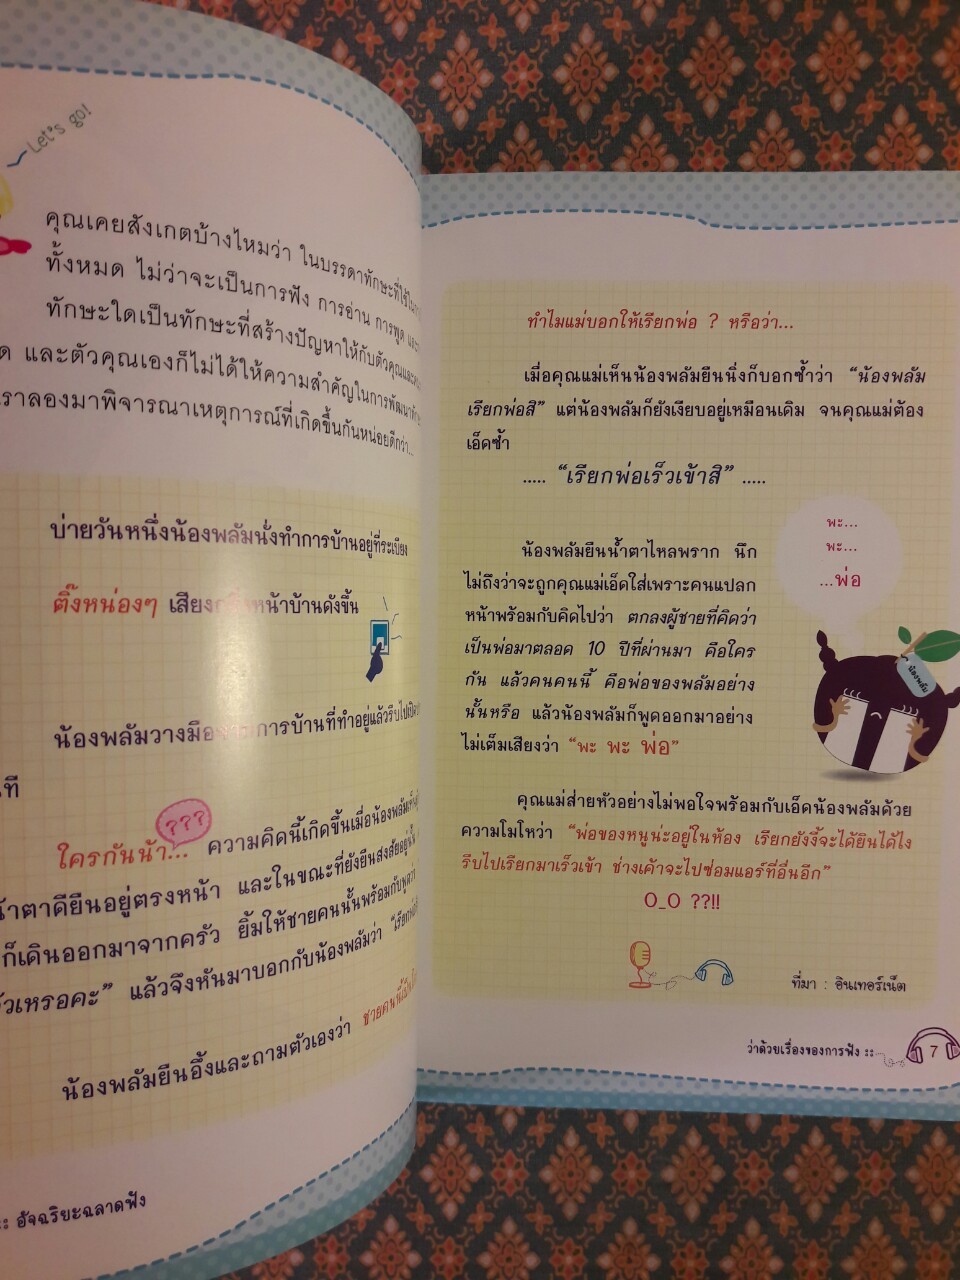 Let's go!
คุณเคยสังเกตบ้างไหมว่า ในบรรดาทักษะที่ใช้ใน
ทั้งหมด ไม่ว่าจะเป็นการฟัง การอ่าน การพูด
ทักษะใดเป็นทักษะที่สร้างปัญหาให้กับตัวคุณและ
และตัวคุณเองก็ไม่ได้ให้ความสำคัญในการพัฒนา
ราลองมาพิจารณาเหตุการณ์ที่เกิดขึ้นกันหน่อยดีกว่า...
บ่ายวันหนึ่งน้องพลัมนั่งทำการบ้านอยู่ที่ระเบียง
ติ๊งหน่องๆ เสียง หน้าบ้านดังขึ้น
น้องพลัมวางมือ การบ้านที่ทำอยู่แล้วรีบไปเปิด
ที
???
ใครกันน้า... ความคิดนี้เกิดขึ้นเมื่อน้องพลัม
น้าตาดียืนอยู่ตรงหน้า และในขณะที่ยังยืนสงสัยอยู่
ก็เดินออกมาจากครัว ยิ้มให้ชายคนนั้นพร้อมกับพูดว่า
เหรอคะ” แล้วจึงหันมาบอกกับน้องพลัมว่า
น้องพลัมยืนอึ้งและถามตัวเองว่า ชายคนนี้
:: อัจฉริยะฉลาดฟัง
ทำไมแม่บอกให้เรียกพ่อ ? หรือว่า...
เมื่อคุณแม่เห็นน้องพลัมยืนนิ่งก็บอกซ้ำว่า “น้องพลัม
เรียกพ่อสิ” แต่น้องพลัมก็ยังเงียบอยู่เหมือนเดิม จนคุณแม่ต้อง
เอ็ดซ้ำ
..... “เรียกพ่อเร็วเข้าสิ” .....
พะ...
พะ...
...พ่อ
น้องพลัมยืนน้ำตาไหลพราก นึก
ไม่ถึงว่าจะถูกคุณแม่เอ็ดใส่เพราะคนแปลก
หน้าพร้อมกับคิดไปว่า ตกลงผู้ชายที่คิดว่า
เป็นพ่อมาตลอด 10 ปีที่ผ่านมา คือใคร
กัน แล้วคนคนนี้ คือพ่อของพลัมอย่าง
นั้นหรือ แล้วน้องพลัมก็พูดออกมาอย่าง
ไม่เต็มเสียงว่า “พะ พะ พ่อ”
น้องพลัม
คุณแม่ส่ายหัวอย่างไม่พอใจพร้อมกับเอ็ดน้องพลัมด้วย
ความโมโหว่า “พ่อของหนูน่ะอยู่ในห้อง เรียกยังงี้จะได้ยินได้ไง
รีบไปเรียกมาเร็วเข้า ช่างเค้าจะไปซ่อมแอร์ที่อื่นอีก”
O_O ??!!
ที่มา : อินเทอร์เน็ต
ว่าด้วยเรื่องของการฟัง ::
7